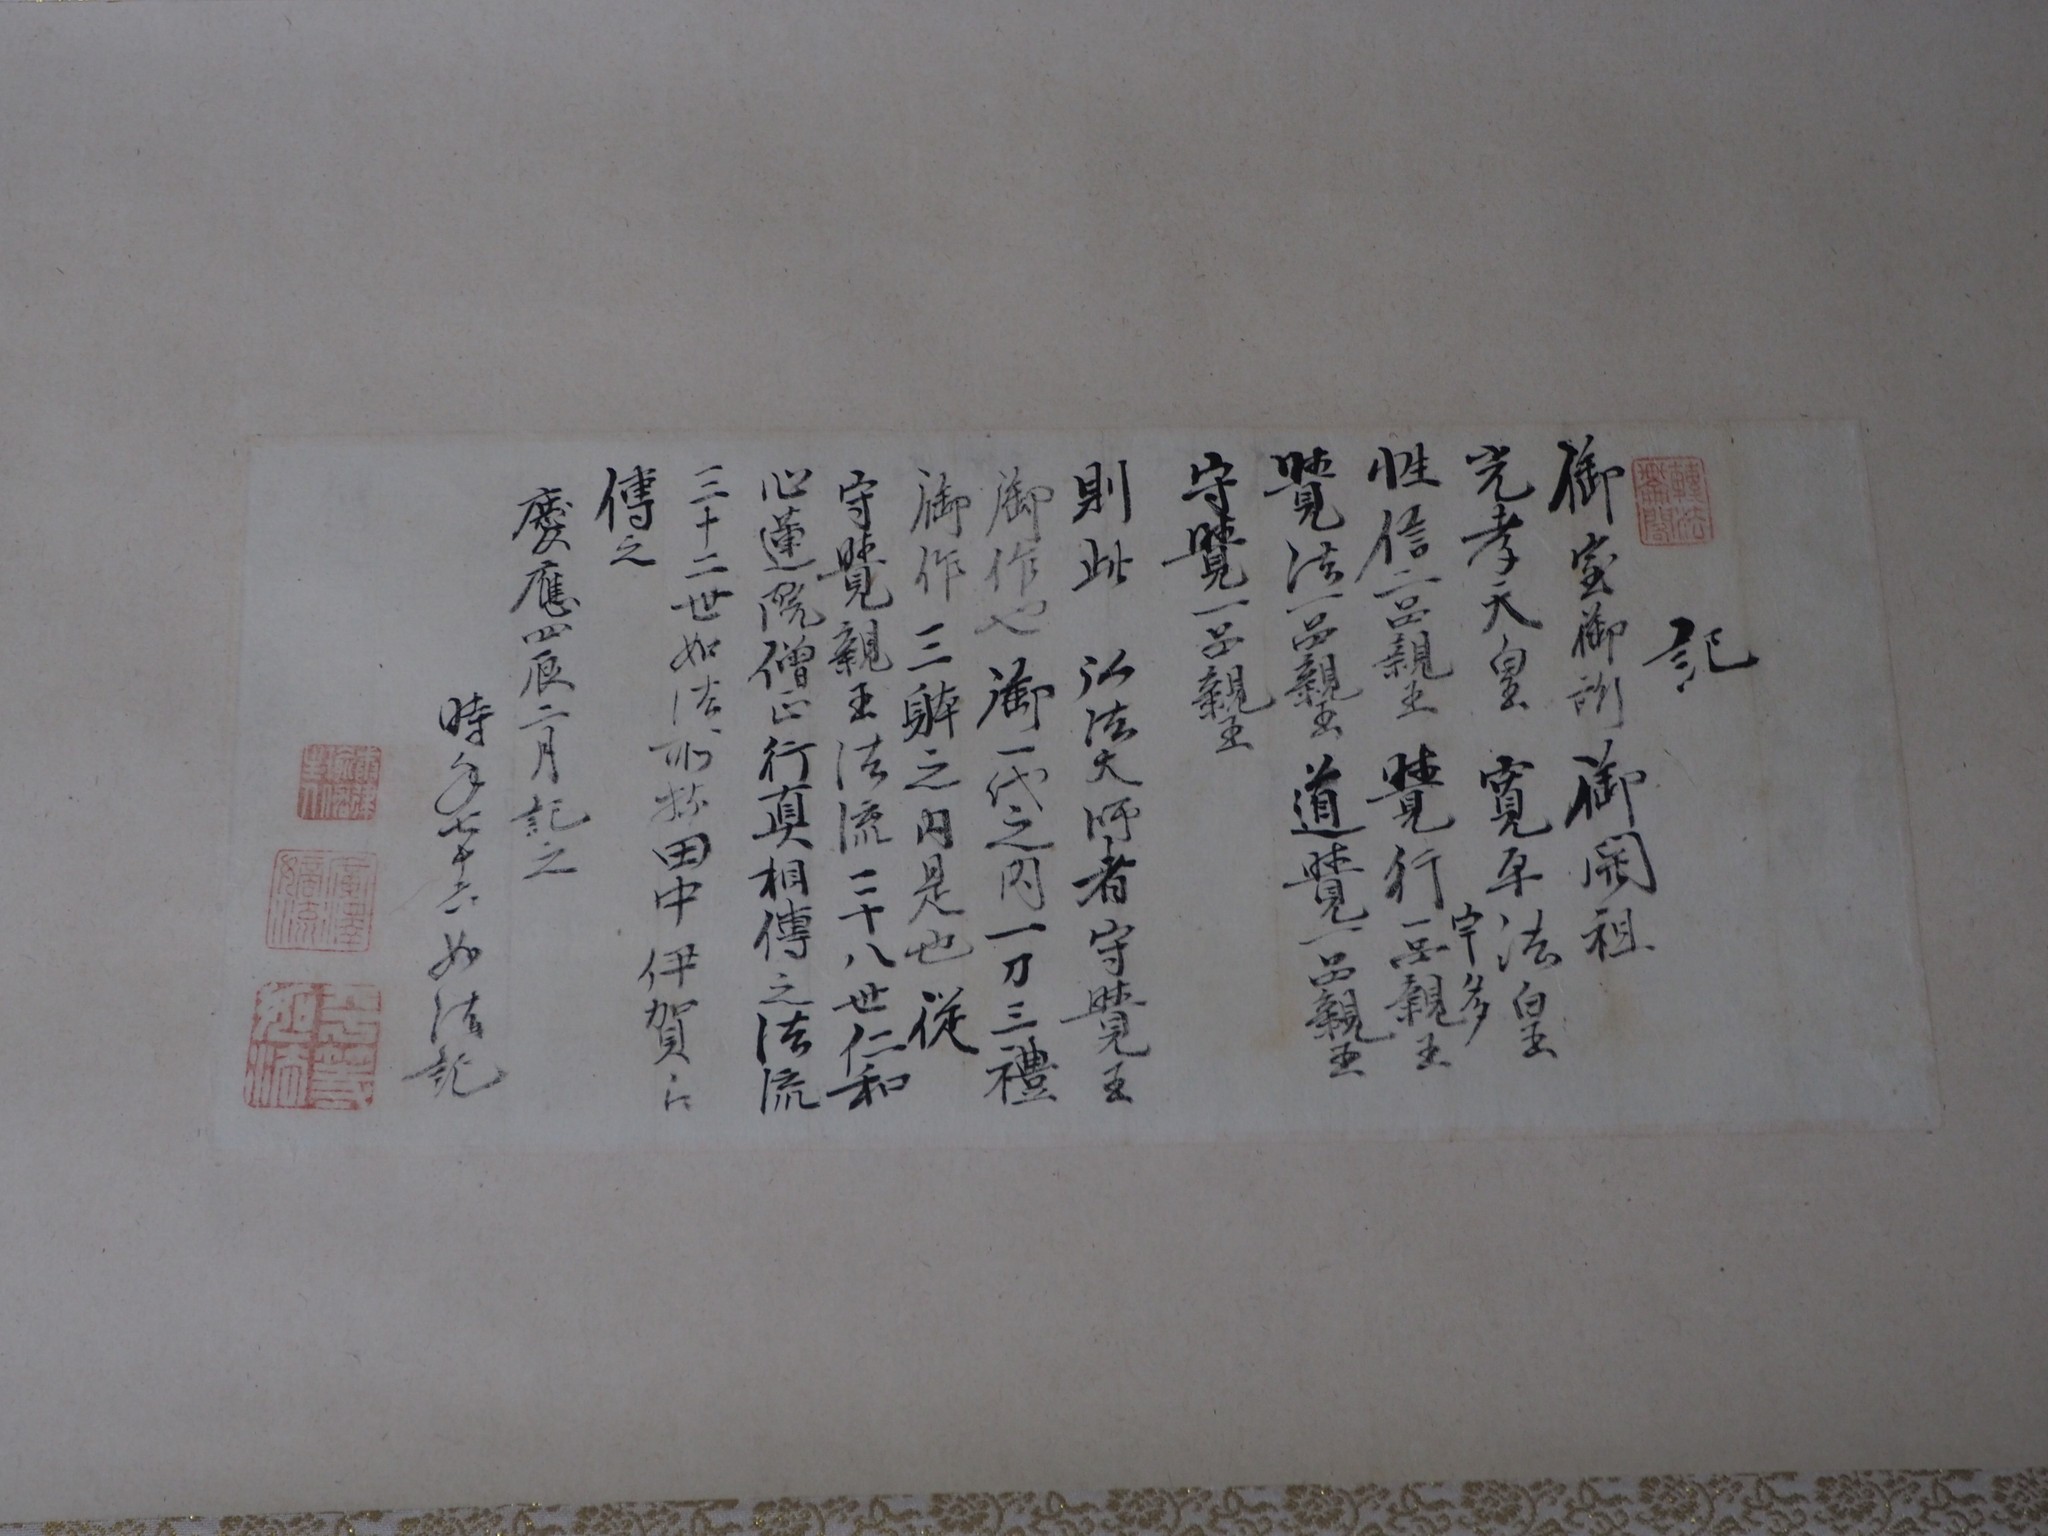 記
御室御所御開祖
光孝天皇 寛平法皇
宇多
性信二品親王 覺行一品親王
覺法一品親王 道覺一品親王
守覺一品親王
則此 弘法大師者守覺王
御作也 御一代之内一刀三禮
御作三躰之内是也 従
守覺親王法流二十八世仁和
心蓮院僧正行真相傳之法流
三十二世如法 田中伊賀
傳之
慶應四辰二月記之
時年七十六如法記